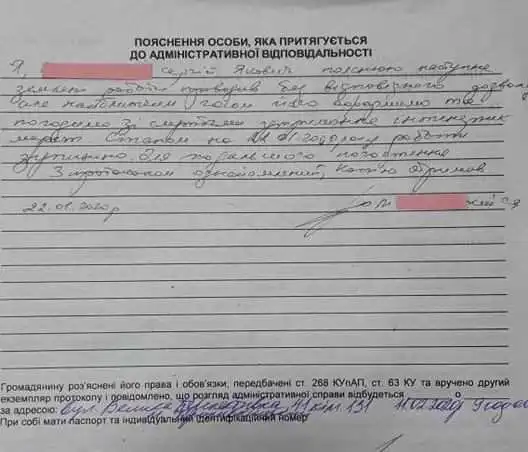 ПОЯСНЕННЯ ОСОБИ, ЯКА ПРИТЯГУЄТЬСЯ
ДО АДМІНІСТРАТИВНОЇ ВІДПОВІДАЛЬНОСТІ
Я, Сергій Якович пояснюю наступне
земляні роботи проводив без відповідного дозволу
але найближчим часом його оформимо та
погодимо зі
Станом на 22.01 роботи
зупинено. Для подальшого погодження
З протоколом ознайомлений, копію отримав
22.01.2020р
Громадянину роз'яснені його права і обов'язки, передбачені ст. 268 КУпАП, ст. 63 КУ та вручено другий
екземпляр протоколу і повідомлено, що розгляд адміністративної справи відбудеться о
за адресою: вул. Велика кім. 131 11.02.2020
При собі мати паспорт та індивідуальний ідентифікаційний номер